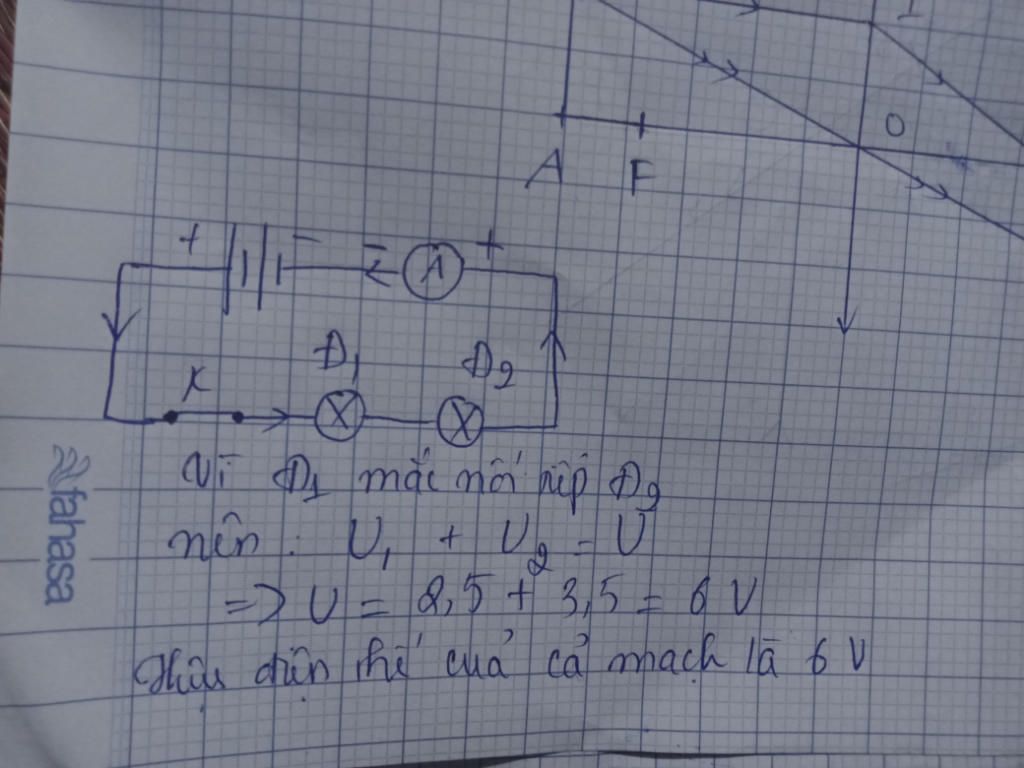 I
O
A F
+ - - A +
K Đ1 Đ2
X X
Vì Đ1 mắc nối tiếp Đ2
nên : U1 + U2 = U
=> U = 2,5 + 3,5 = 6 V
Hiệu điện thế của cả mạch là 6 V
fahasa